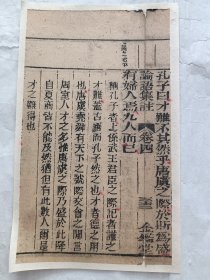 孔子曰才難不其然乎唐虞之際於斯爲盛
論語集註 卷四
有婦人焉九人而已
稱孔子者上係武王君臣之際記者謹之
才難蓋古語而孔子然之也才者德之用
也唐虞堯舜有天下之號際交會之間言
周室人才之多惟唐虞之際乃盛於此降
自夏商皆不能及然猶但有此數人爾是
才之難得也